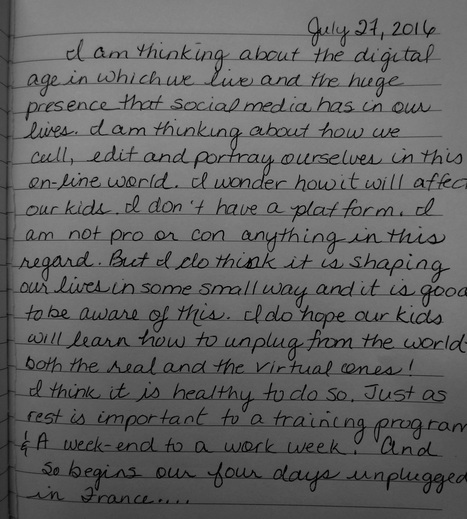 July 27, 2016
I am thinking about the digital
age in which we live and the huge
presence that social media has in our
lives. I am thinking about how we
cull, edit and portray ourselves in this
on-line world. I wonder how it will affec
our kids. I don't have a platform. I
am not pro or con anything in this
regard. But I do think it is shaping
our lives in some small way and it is good
to be aware of this. I do hope our kids
will learn how to unplug from the world-
both the real and the virtual ones!
I think it is healthy to do so. Just as
rest is important to a training program
& A week-end to a work week. And
so begins our four days unplugged
in France....